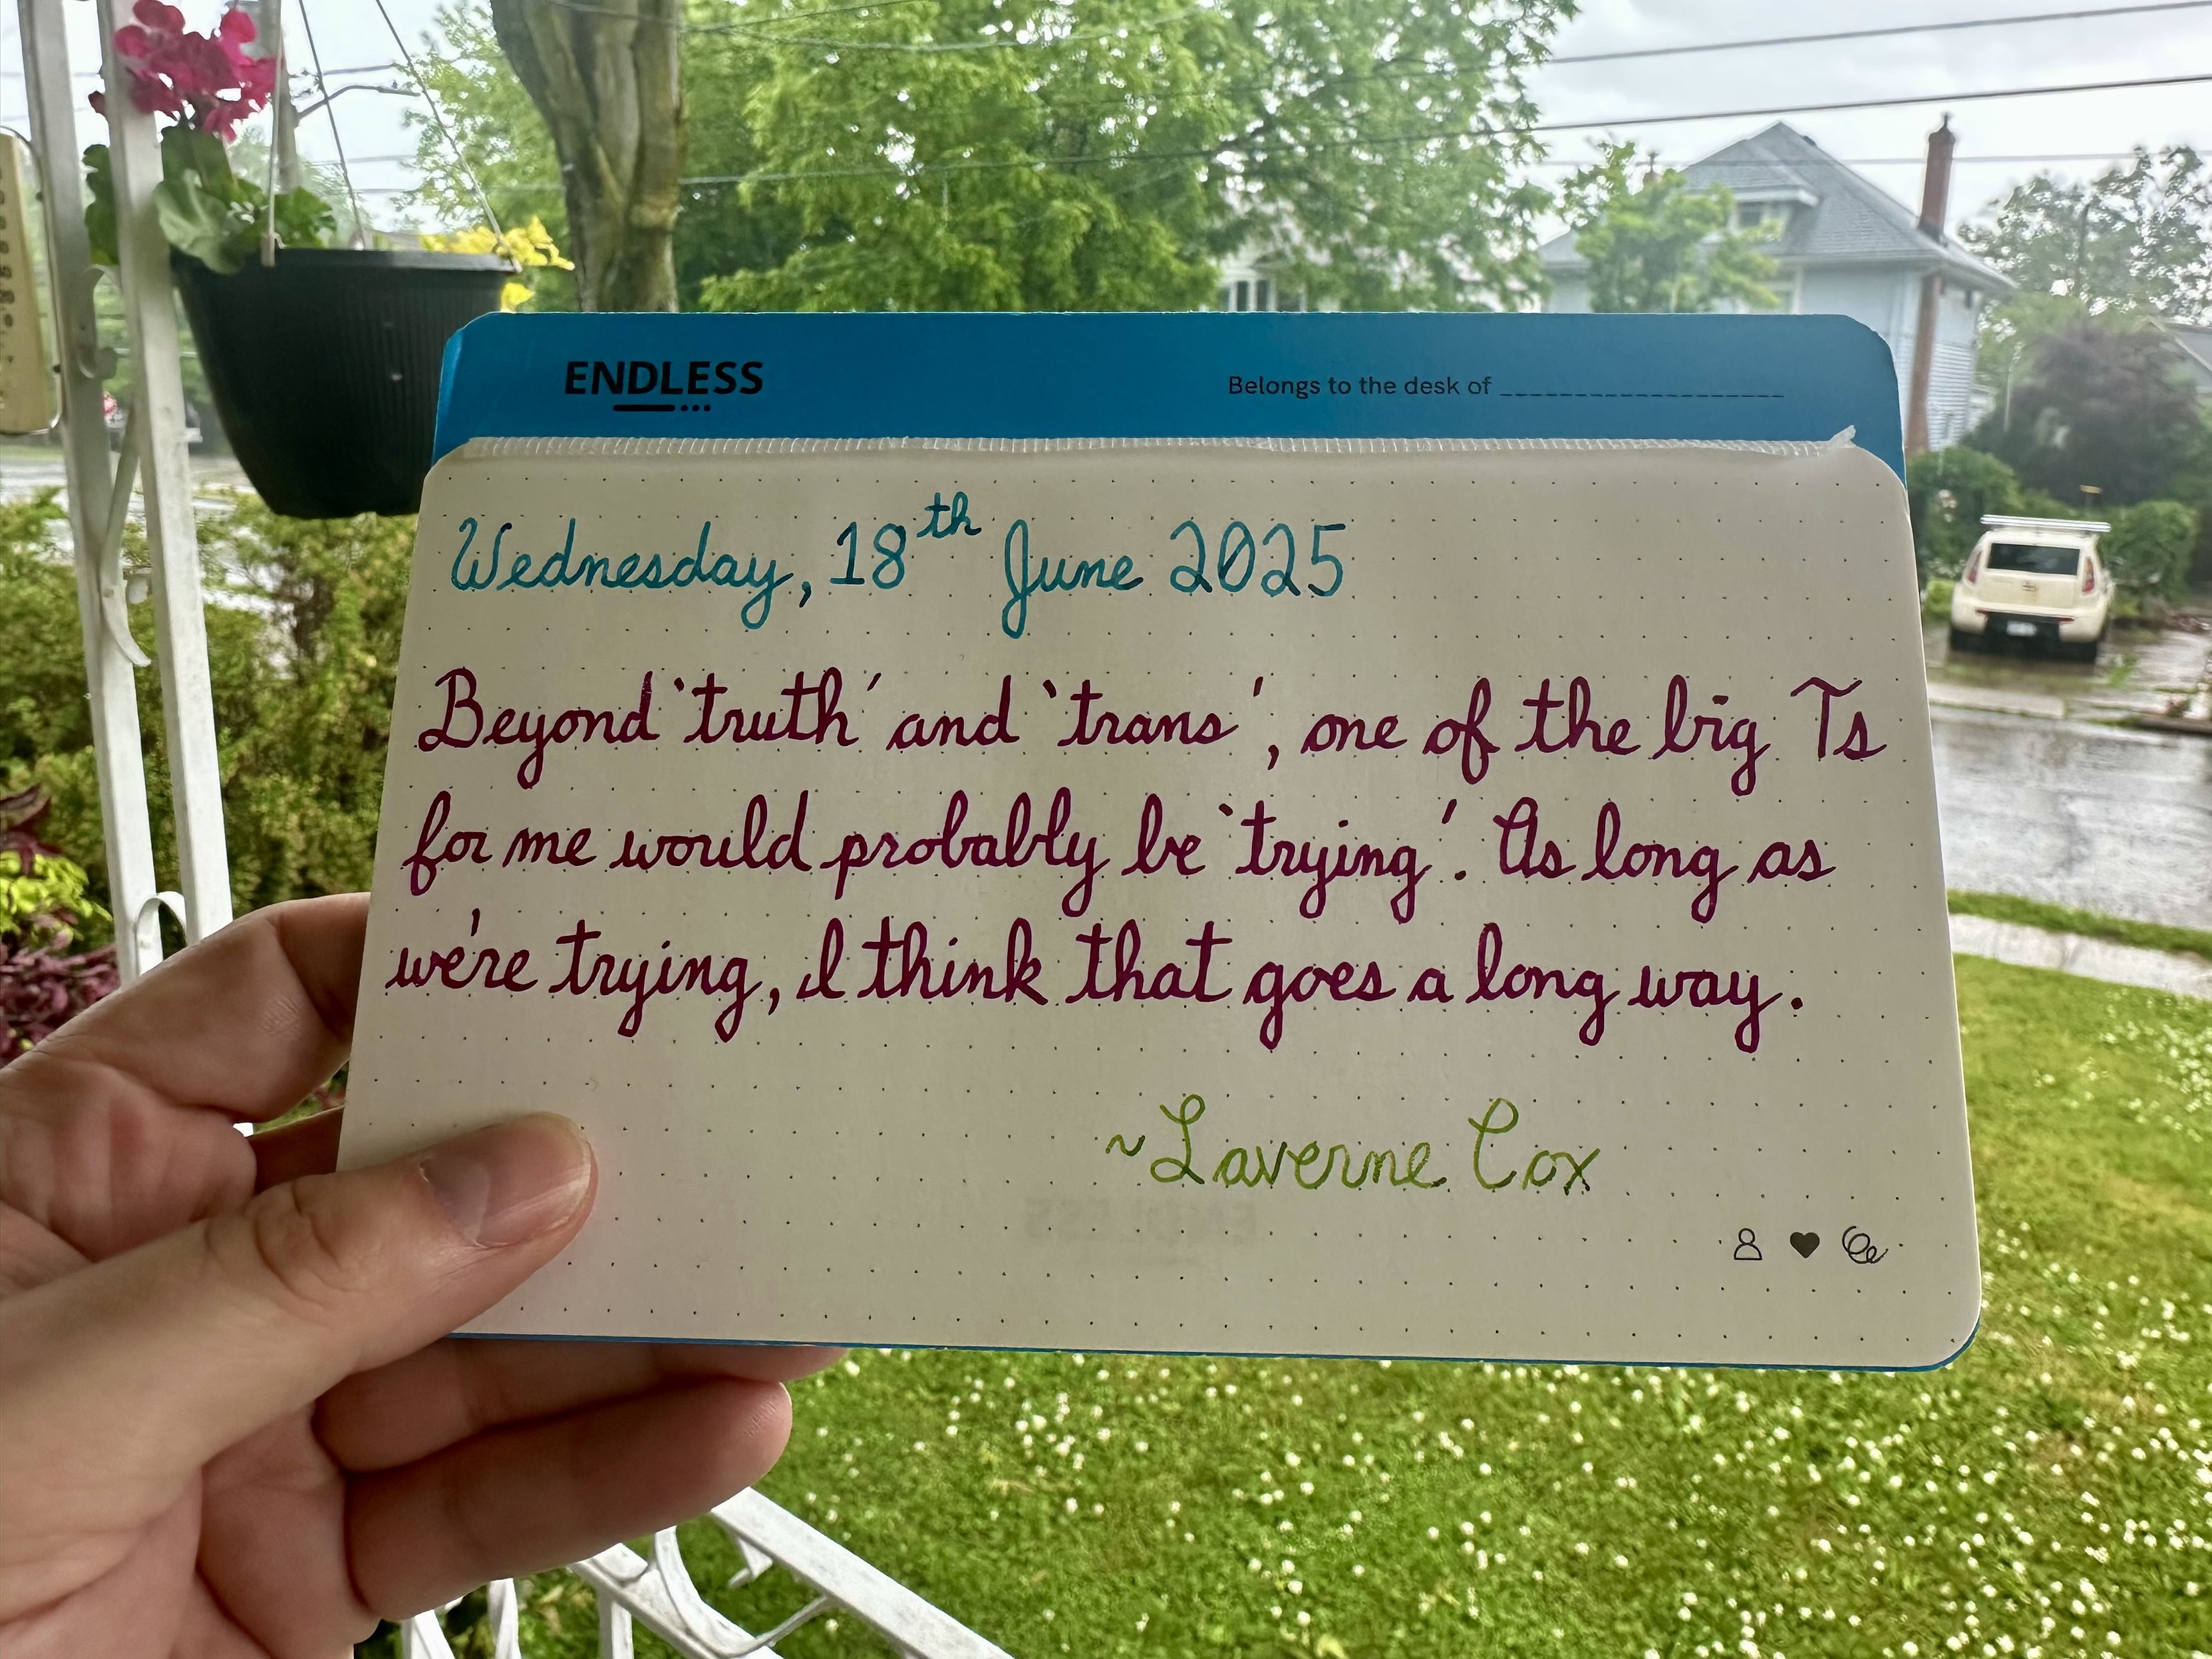 ENDLESS
Belongs to the desk of
Wednesday, 18th June 2025
Beyond 'truth' and 'trans', one of the big Ts
for me would probably be 'trying'. As long as
we're trying, I think that goes a long way.
~Laverne Cox